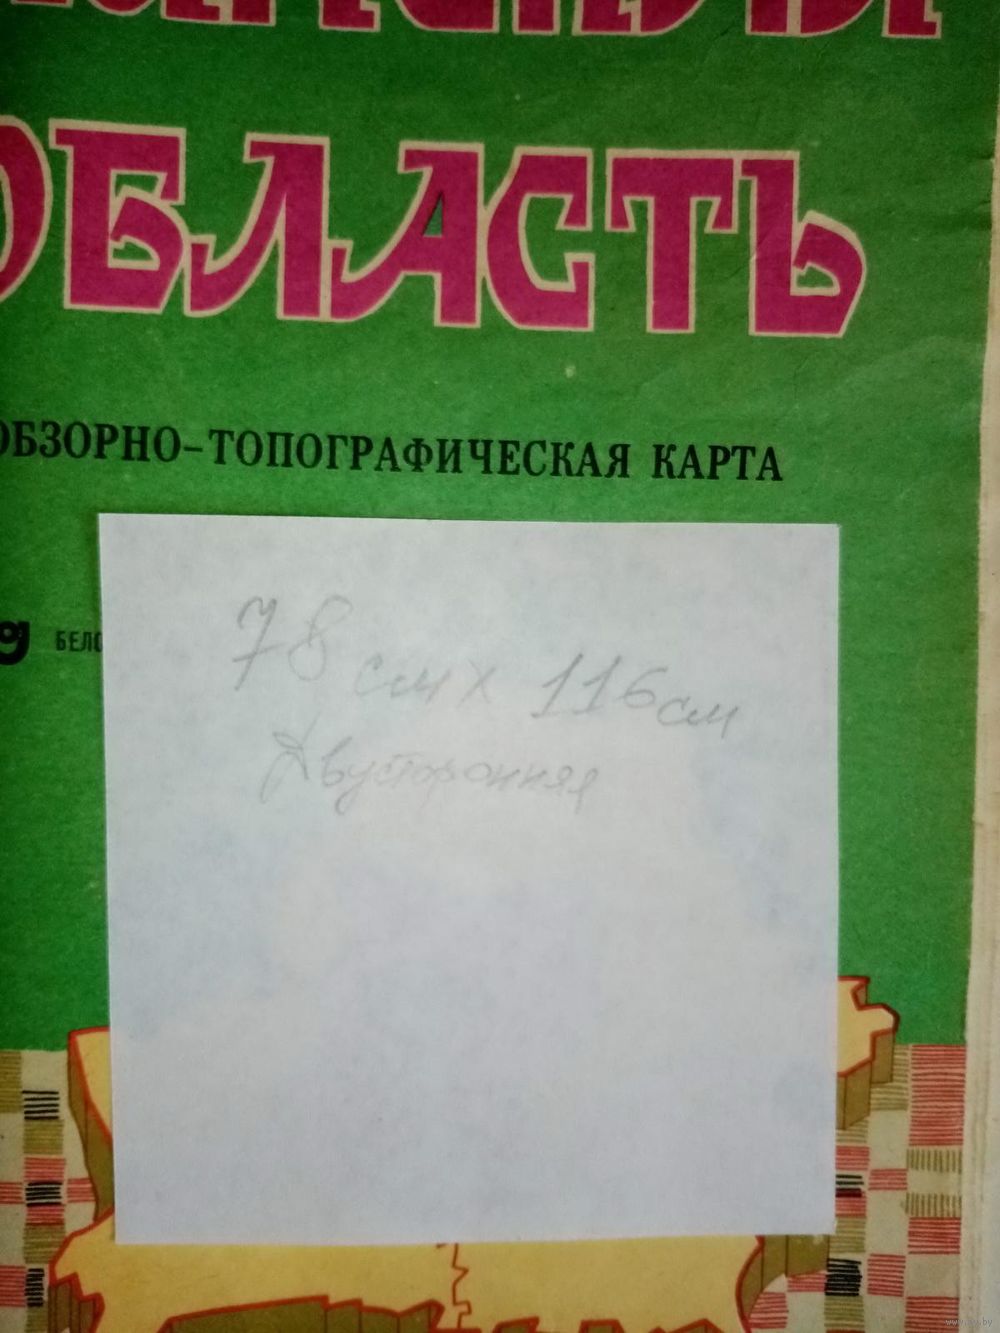 ОБЛАСТЬ
ОБЗОРНО-ТОПОГРАФИЧЕСКАЯ КАРТА
БЕЛО
78 см х 116 см
Двусторонняя